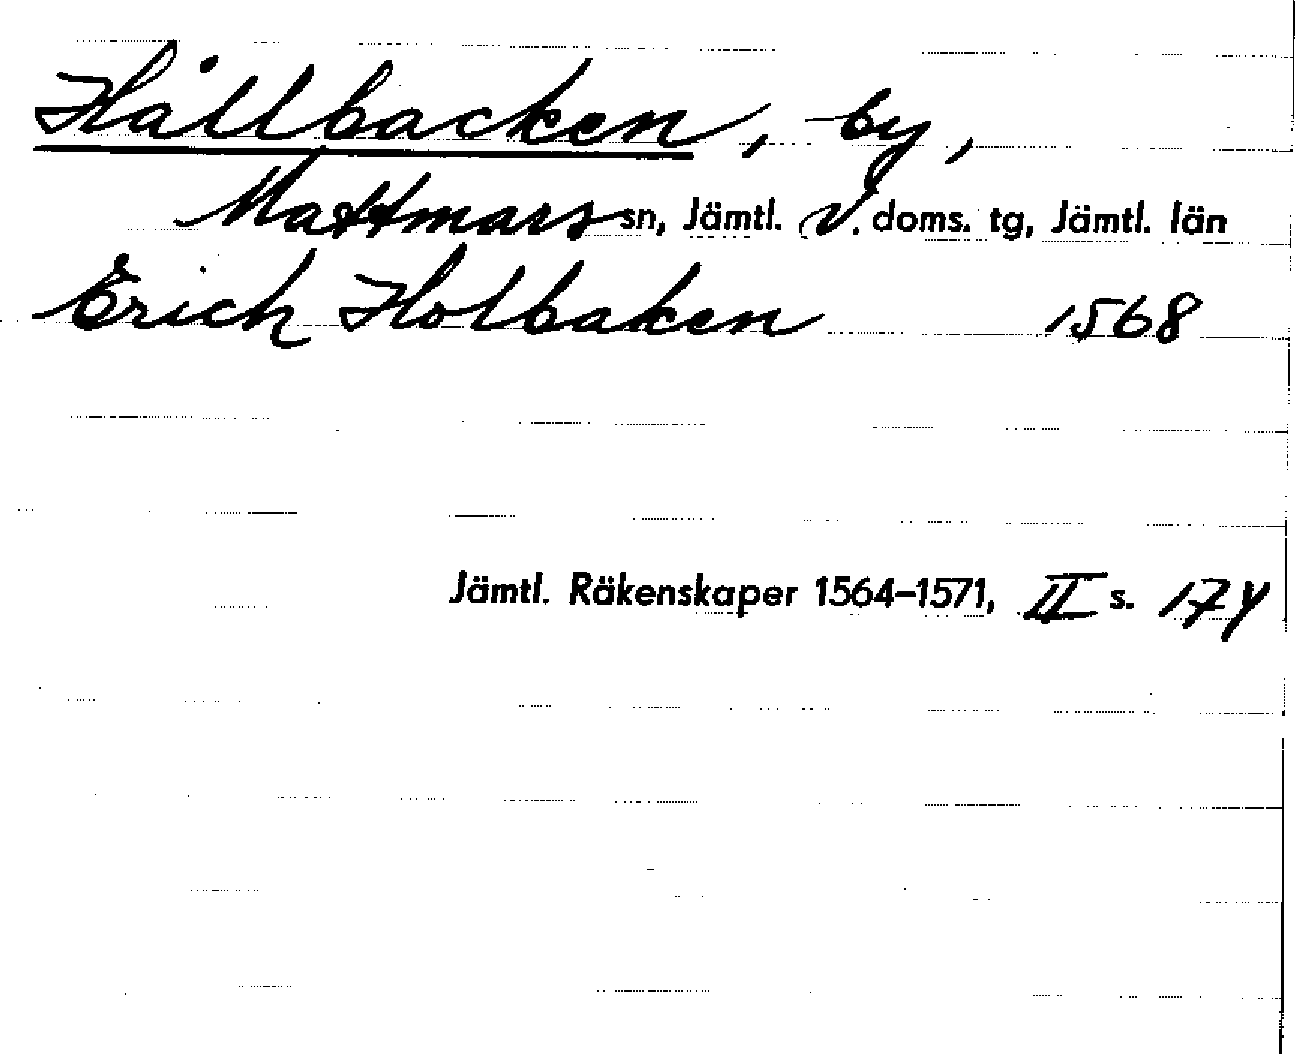 Hållbacken, by,
Mattmars sn, Jämtl. V. doms. tg, Jämtl. län
Erich Holbaken 1568
Jämtl. Räkenskaper 1564-1571, II s. 174